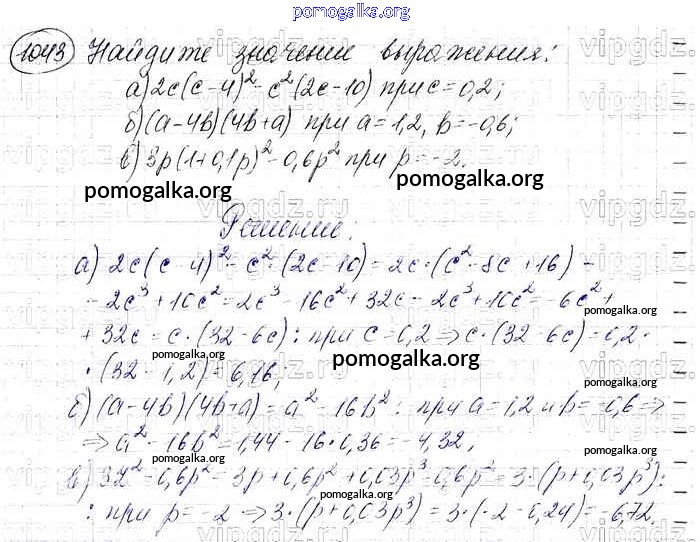 pomogalka.org
1043 Найдите значение выражения:
а) 2c(c-4)² - c²(2c-10) при c=0,2;
б) (a-4b)(4b+a) при a=1,2, b=-0,6;
в) 3p(1+0,1p)² - 0,6p² при p=-2.
pomogalka.org pomogalka.org
Решение:
а) 2c(c-4)² - c²·(2c-10) = 2c·(c²-8c+16) -
- 2c³+10c² = 2c³-16c²+32c-2c³+10c² = -6c²+
pomogalka.org
+32c = c·(32-6c): при c=0,2 ⇒ c·(32-6c) = 0,2·
pomogalka.org pomogalka.org
·(32-1,2) = 6,16;
pomogalka.org
б) (a-4b)(4b+a) = a²-16b²: при a=1,2 и b=-0,6 ⇒
⇒ a²-16b² = 1,44-16·0,36 = -4,32;
pomogalka.org pomogalka.org
в) -0,6p² = 3p+0,6p²+0,03p³-0,6p² = 3·(p+0,03p³):
pomogalka.org
: при p=-2 ⇒ 3·(p+0,03p³) = 3·(-2-0,24) = -6,72.
pomogalka.org
vipgdz.ru